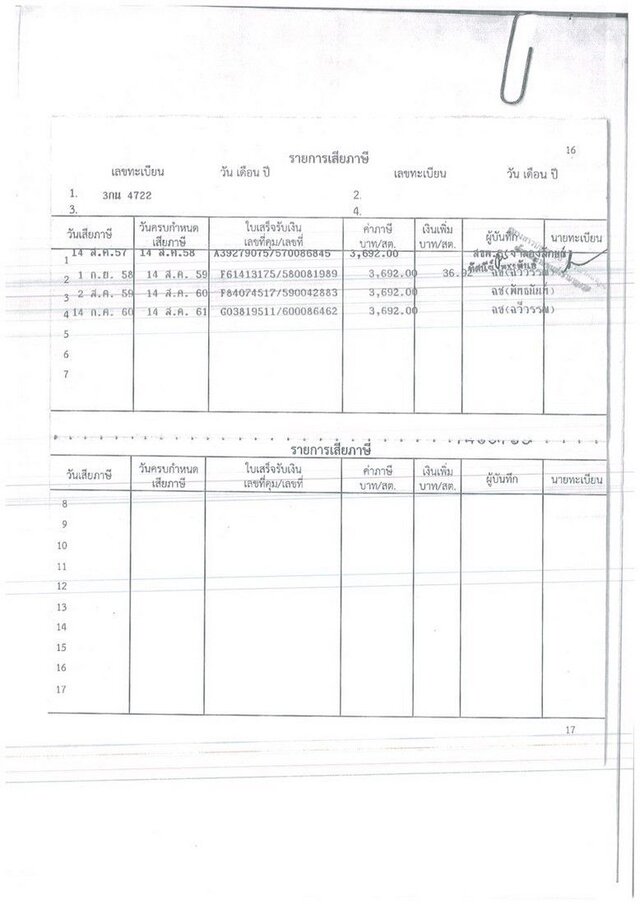 16
รายการเสียภาษี
เลขทะเบียน วัน เดือน ปี เลขทะเบียน วัน เดือน ปี
1. 3กผ 4722 2.
3. 4.
วันเสียภาษี วันครบกำหนดเสียภาษี ใบเสร็จรับเงิน เลขที่คุม/เลขที่ ค่าภาษี บาท/สต. เงินเพิ่ม บาท/สต. ผู้บันทึก นายทะเบียน
1 14 ส.ค.57 14 ส.ค.58 A39279075/570086845 3,692.00
2 1 ก.ย. 58 14 ส.ค. 59 F61413175/580081989 3,692.00 36.92
3 2 ส.ค. 59 14 ส.ค. 60 F84074517/590042883 3,692.00
4 14 ก.ค. 60 14 ส.ค. 61 G03819511/600086462 3,692.00 ฉช(ฉวีวรรณ)
5
6
7
รายการเสียภาษี
วันเสียภาษี วันครบกำหนดเสียภาษี ใบเสร็จรับเงิน เลขที่คุม/เลขที่ ค่าภาษี บาท/สต. เงินเพิ่ม บาท/สต. ผู้บันทึก นายทะเบียน
8
9
10
11
12
13
14
15
16
17
17